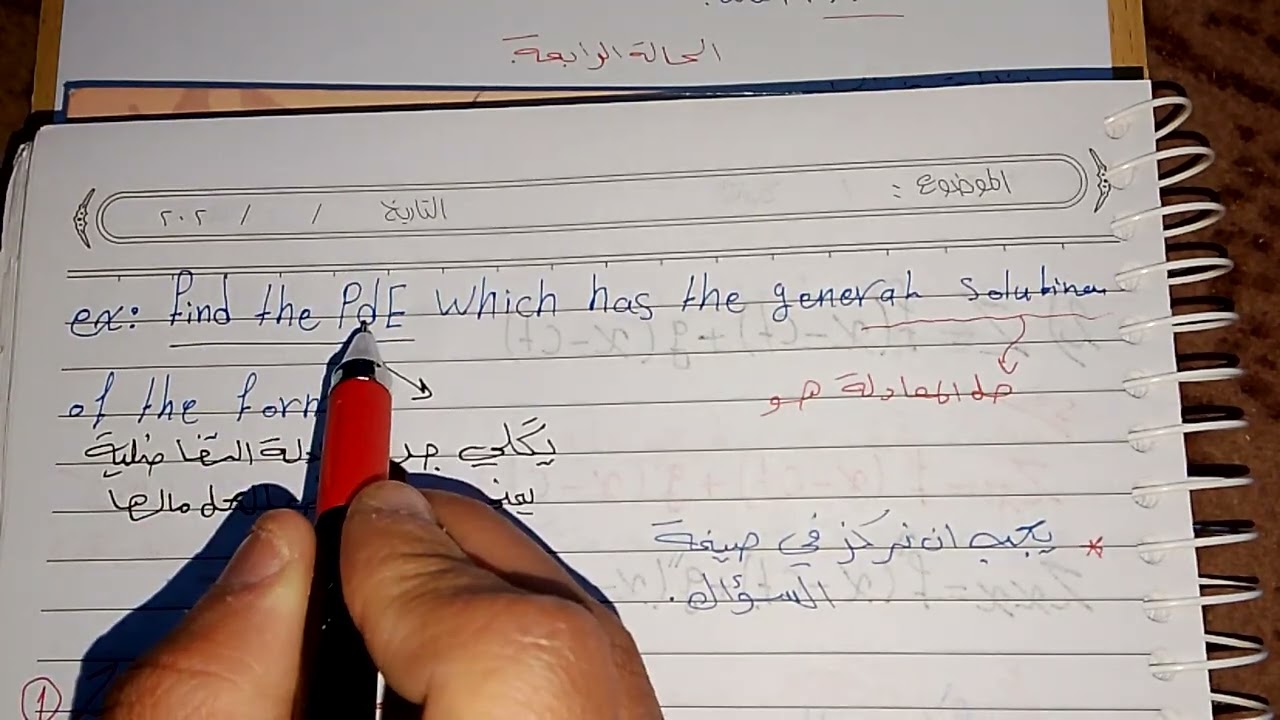 الحالة الرابعة.
الموضوع :
التاريخ / / ٢٠٢
ex: Find the PdE which has the general solution
of the form
حل المعادلة هو
يكلي جد التفاضلية
يعني الحل مالها
* يجب ان نركز في صيغة
السؤال.
1